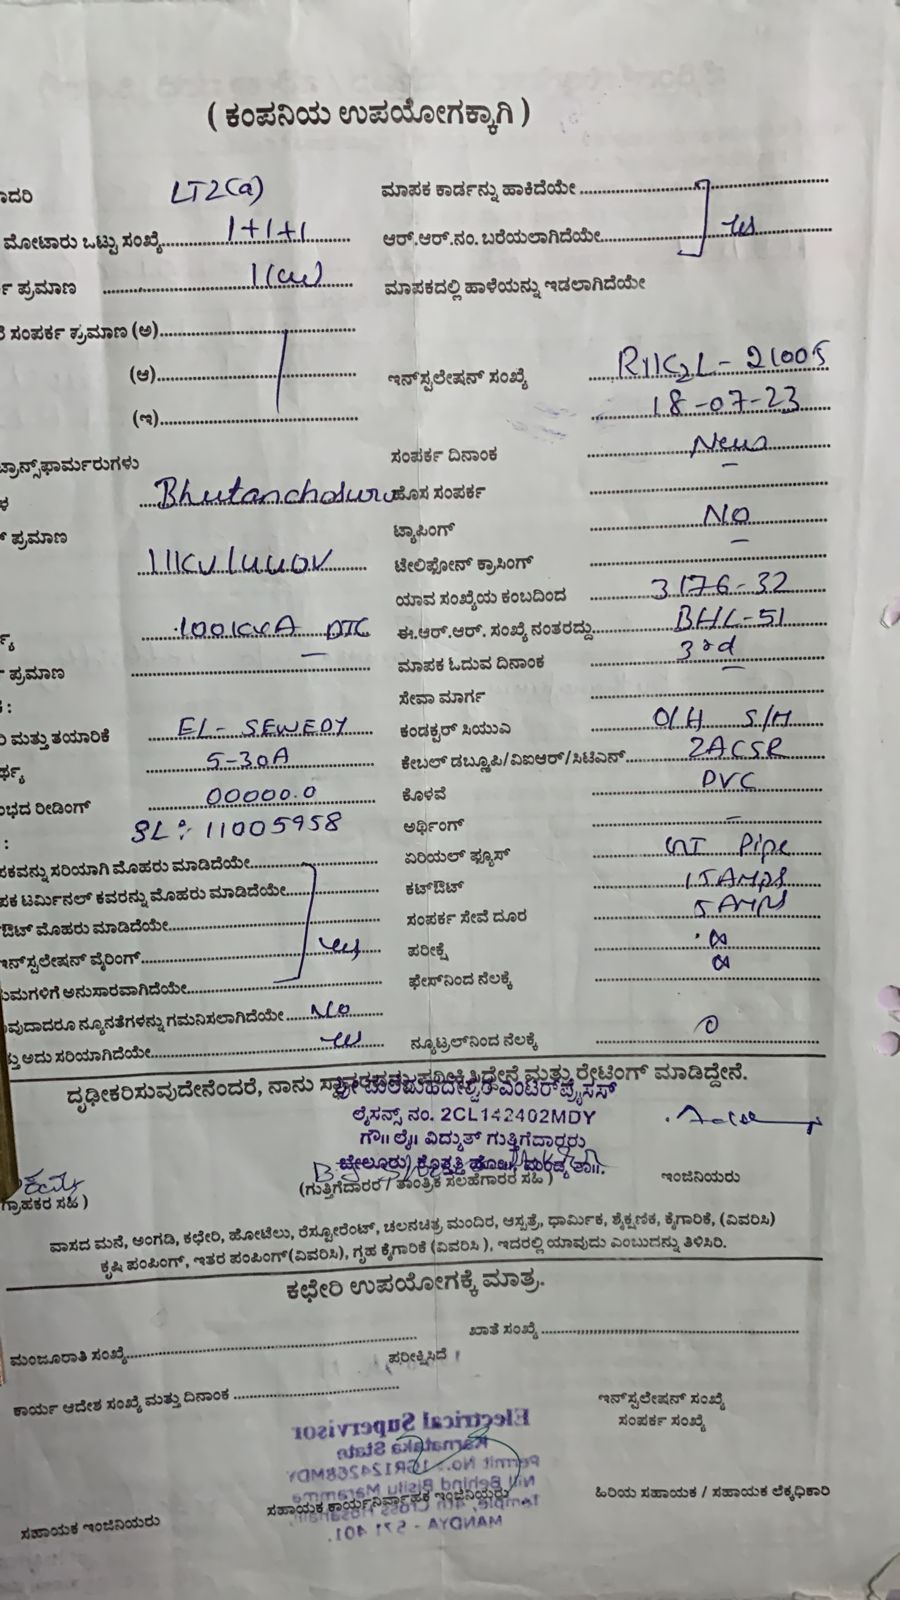 ( ಕಂಪನಿಯ ಉಪಯೋಗಕ್ಕಾಗಿ )
ಾದರಿ LT2(a)
ಮೋಟಾರು ಒಟ್ಟು ಸಂಖ್ಯೆ 1+1+1
ಪ್ರಮಾಣ
ಸಂಪರ್ಕ ಪ್ರಮಾಣ (ಅ)
(ಆ)
(ಇ)
ಟ್ರಾನ್ಸ್‌ಫಾರ್ಮರುಗಳು
ಪ್ರಮಾಣ
11KV/440V
100KVA DTC
ಪ್ರಮಾಣ
ರಿ ಮತ್ತು ತಯಾರಿಕೆ EL-SEWEDY
5-30A
ಭದ ರೀಡಿಂಗ್ 00000.0
SL: 11005958
ಪಕವನ್ನು ಸರಿಯಾಗಿ ಮೊಹರು ಮಾಡಿದೆಯೇ
ಪಕ ಟರ್ಮಿನಲ್ ಕವರನ್ನು ಮೊಹರು ಮಾಡಿದೆಯೇ
ಔಟ್ ಮೊಹರು ಮಾಡಿದೆಯೇ
ಇನ್‌ಸ್ಟಲೇಷನ್ ವೈರಿಂಗ್ yes
ಯಮಗಳಿಗೆ ಅನುಸಾರವಾಗಿದೆಯೇ
ವುದಾದರೂ ನ್ಯೂನತೆಗಳನ್ನು ಗಮನಿಸಲಾಗಿದೆಯೇ No
ತು ಅದು ಸರಿಯಾಗಿದೆಯೇ yes
ಮಾಪಕ ಕಾರ್ಡನ್ನು ಹಾಕಿದೆಯೇ
ಆರ್.ಆರ್.ನಂ. ಬರೆಯಲಾಗಿದೆಯೇ yes
ಮಾಪಕದಲ್ಲಿ ಹಾಳೆಯನ್ನು ಇಡಲಾಗಿದೆಯೇ
ಇನ್‌ಸ್ಪಲೇಷನ್ ಸಂಖ್ಯೆ
18-07-23
ಸಂಪರ್ಕ ದಿನಾಂಕ New
ಹೊಸ ಸಂಪರ್ಕ
ಟ್ಯಾಪಿಂಗ್ NO
ಟೇಲಿಫೋನ್ ಕ್ರಾಸಿಂಗ್
ಯಾವ ಸಂಖ್ಯೆಯ ಕಂಬದಿಂದ 3176-32
ಈ.ಆರ್.ಆರ್. ಸಂಖ್ಯೆ ನಂತರದ್ದು BHL-51
ಮಾಪಕ ಓದುವ ದಿನಾಂಕ 3rd
ಸೇವಾ ಮಾರ್ಗ
ಕಂಡಕ್ಟರ್ ಸಿಯುಎ O/H S/M
ಕೇಬಲ್ ಡಬ್ಲೂಪಿ/ವಿಐಆರ್/ಸಿಟಿಎನ್ 2ACSR
ಕೊಳವೆ PVC
ಅರ್ಥಿಂಗ್
ಏರಿಯಲ್ ಫ್ಯೂಸ್ GI Pipe
ಕಟ್‌ಔಟ್ 15 AMPS
ಸಂಪರ್ಕ ಸೇವೆ ದೂರ 5 AMPS
ಪರೀಕ್ಷೆ ∞
ಫೇಸ್‌ನಿಂದ ನೆಲಕ್ಕೆ ∞
ನ್ಯೂಟ್ರಲ್‌ನಿಂದ ನೆಲಕ್ಕೆ 0
ದೃಢೀಕರಿಸುವುದೇನೆಂದರೆ, ನಾನು ಸ್ಥಾವರವನ್ನು ಪರೀಕ್ಷಿಸಿದ್ದೇನೆ ಮತ್ತು ರೇಟಿಂಗ್ ಮಾಡಿದ್ದೇನೆ.
ಎಂಟರ್‌ಪ್ರೈಸಸ್
ಲೈಸನ್ಸ್ ನಂ. 2CL142402MDY
ಗೌ|| ಲೈ|| ವಿದ್ಯುತ್ ಗುತ್ತಿಗೆದಾರರು
ಬೇಲೂರು, ಕೊತ್ತತ್ತಿ ಹೋ||, ಮಂಡ್ಯ ತಾ||.
ಗ್ರಾಹಕರ ಸಹಿ )
(ಗುತ್ತಿಗೆದಾರರ / ತಾಂತ್ರಿಕ ಸಲಹೆಗಾರರ ಸಹಿ )
ಇಂಜಿನಿಯರು
ವಾಸದ ಮನೆ, ಅಂಗಡಿ, ಕಛೇರಿ, ಹೋಟೆಲು, ರೆಸ್ಟೋರೆಂಟ್, ಚಲನಚಿತ್ರ ಮಂದಿರ, ಆಸ್ಪತ್ರೆ, ಧಾರ್ಮಿಕ, ಶೈಕ್ಷಣಿಕ, ಕೈಗಾರಿಕೆ, (ವಿವರಿಸಿ)
ಕೃಷಿ ಪಂಪಿಂಗ್, ಇತರ ಪಂಪಿಂಗ್(ವಿವರಿಸಿ), ಗೃಹ ಕೈಗಾರಿಕೆ (ವಿವರಿಸಿ ), ಇದರಲ್ಲಿ ಯಾವುದು ಎಂಬುದನ್ನು ತಿಳಿಸಿರಿ.
ಕಛೇರಿ ಉಪಯೋಗಕ್ಕೆ ಮಾತ್ರ.
ಮಂಜೂರಾತಿ ಸಂಖ್ಯೆ
ಖಾತೆ ಸಂಖ್ಯೆ
ಪರೀಕ್ಷಿಸಿದೆ
ಕಾರ್ಯ ಆದೇಶ ಸಂಖ್ಯೆ ಮತ್ತು ದಿನಾಂಕ
ಇನ್‌ಸ್ಪಲೇಷನ್ ಸಂಖ್ಯೆ
ಸಂಪರ್ಕ ಸಂಖ್ಯೆ
Electrical Supervisor
Karnataka State
MANDYA - 571 401.
ಸಹಾಯಕ ಇಂಜಿನಿಯರು
ಸಹಾಯಕ ಕಾರ್ಯನಿರ್ವಾಹಕ ಇಂಜಿನಿಯರು
ಹಿರಿಯ ಸಹಾಯಕ / ಸಹಾಯಕ ಲೆಕ್ಕಧಿಕಾರಿ